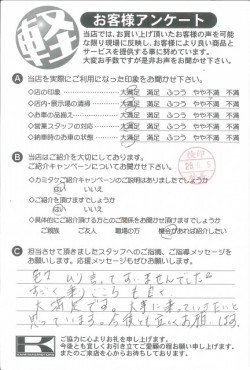 軽
お客様アンケート
当店では、お買い上げ頂いたお客様の声を可能
な限り現場に反映し、お客様により良い商品と
サービスを提供する事に努めています。
大変お手数ですが是非お声をお聞かせ下さい。
A 当店を実際にご利用になった印象をお聞かせ下さい。
◇店の印象 大満足 満足 ふつう やや不満 不満
◇店内・展示場の清掃 大満足 満足 ふつう やや不満 不満
◇お車の品揃え 大満足 満足 ふつう やや不満 不満
◇営業スタッフの対応 大満足 満足 ふつう やや不満 不満
◇納車時のお車の状態 大満足 満足 ふつう やや不満 不満
B 当店はご紹介を大切にしております。
ご紹介キャンペーンについてお聞かせ下さい。
検印
◇カミタケご紹介キャンペーンのご説明はありましたでしょうか
はい いいえ
◇ご紹介を頂けますでしょうか
はい いいえ
◇具体的にご紹介頂ける方とのご関係をお聞かせ頂けますでしょうか
ご親族 ご友人 職場の方 機会があれば紹介したい
C 担当させて頂きましたスタッフへのご指摘、ご指導メッセージを
お願いします。応援メッセージもぜひお願いします。
大満足です。大事に乗っていきたいと
思っています。今後も宜しくお願いします。
K
ご協力に心よりお礼を申し上げます。
今後とも宜しくお引き立てご愛顧の程お願い申し上げます。
またのご来店を心からお待ちしております。